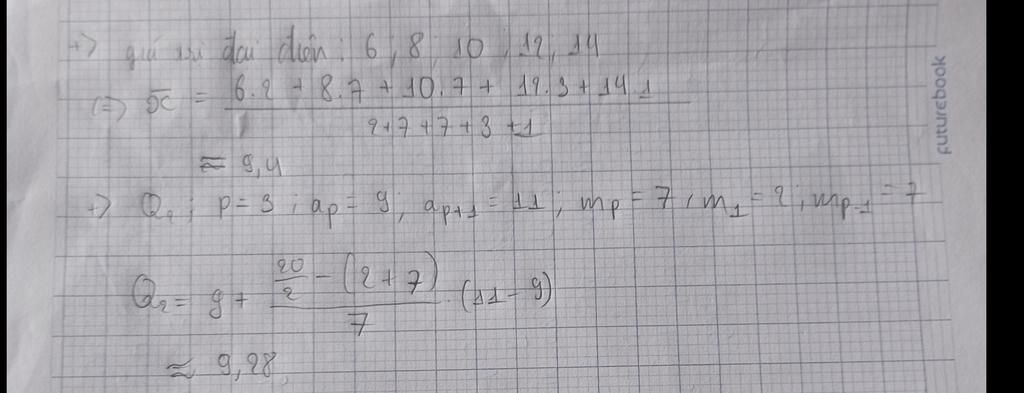 +> giá trị đại diện: 6, 8, 10, 12, 14
(=) x̄ = (6.2 + 8.7 + 10.7 + 12.3 + 14.1) / (2+7+7+3+1)
≈ 9,4
+> Q₂ ; p = 3 ; ap = 9 ; ap+1 = 11 ; mp = 7 , m1 = 2 ; mp-1 = 7
Q₂ = 9 + (20/2 - (2+7)) / 7 . (11 - 9)
≈ 9,28
futurebook